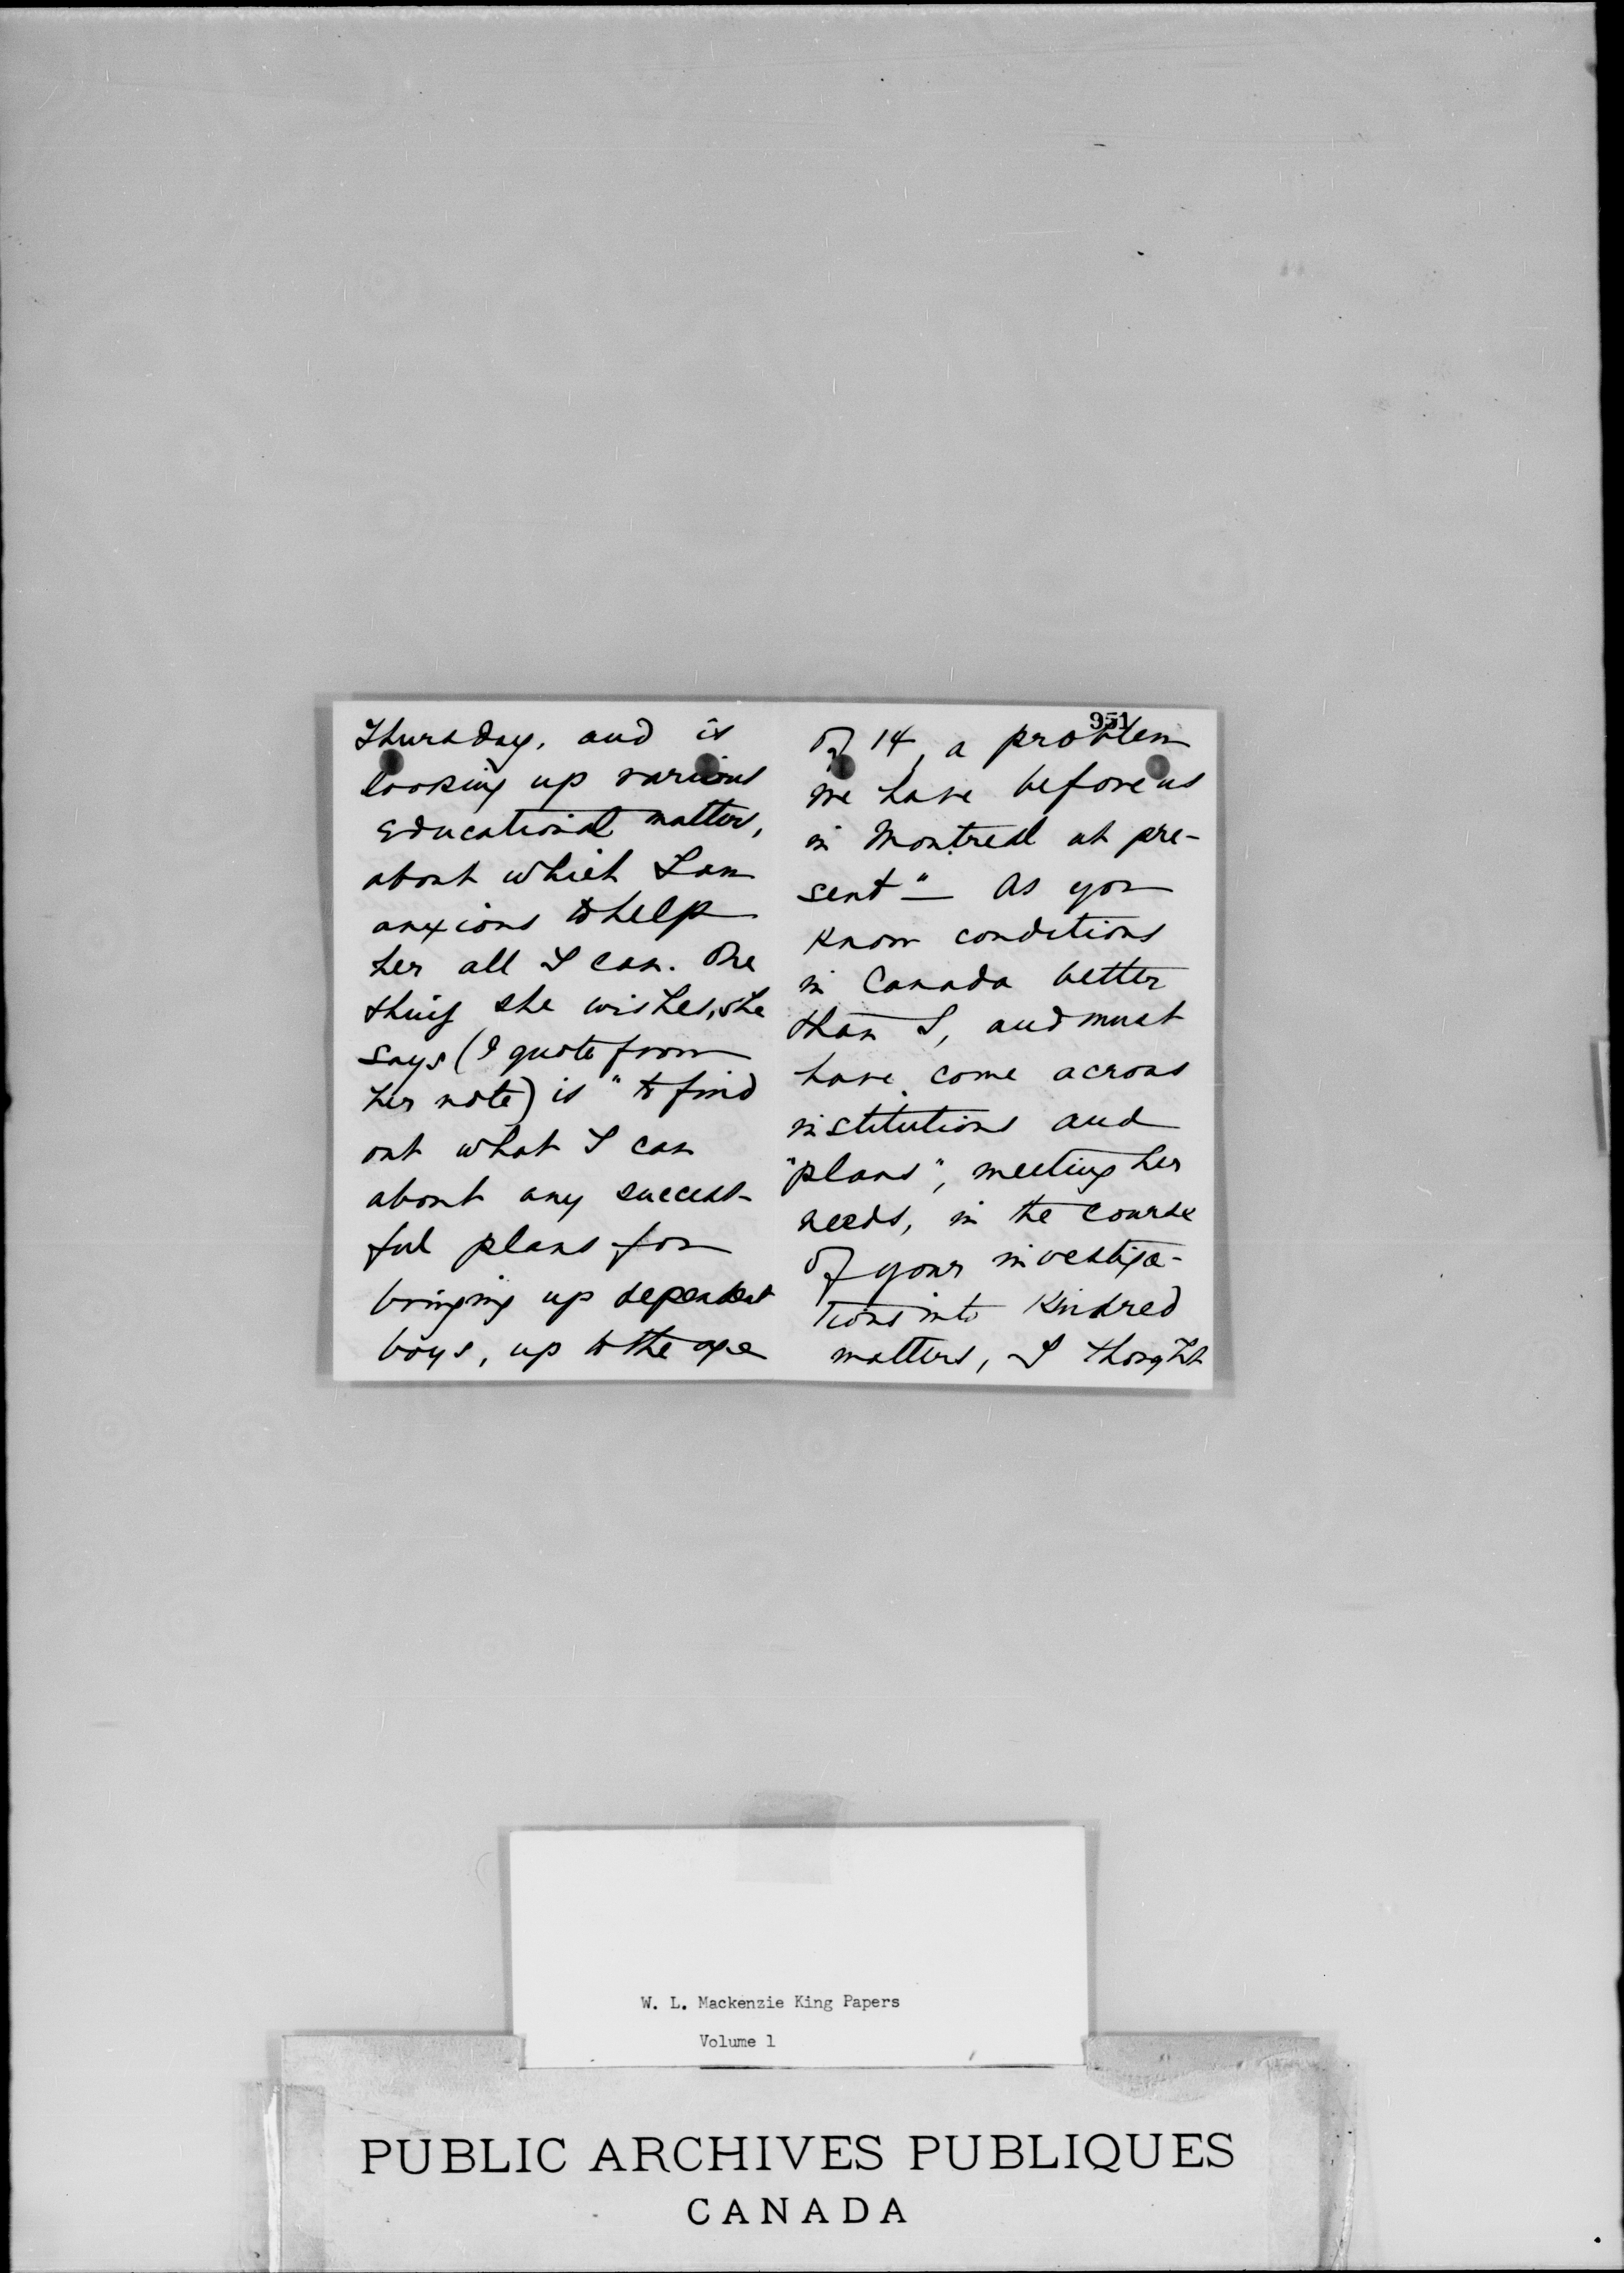 Thursday, and is
looking up various
educational matters,
about which I am
anxious to help
her all I can. One
thing she wishes, she
says (I quote from
her note) is "to find
out what I can
about any success-
ful plans for
bringing up dependent
boys, up to the age
951
of 14, a problem
we have before us
in Montreal at pre-
sent" — As you
know conditions
in Canada better
than I, and must
have come across
institutions and
"plans", meeting her
needs, in the course
of your investiga-
tions into kindred
matters, I thought
W. L. Mackenzie King Papers
Volume 1
PUBLIC ARCHIVES PUBLIQUES
CANADA